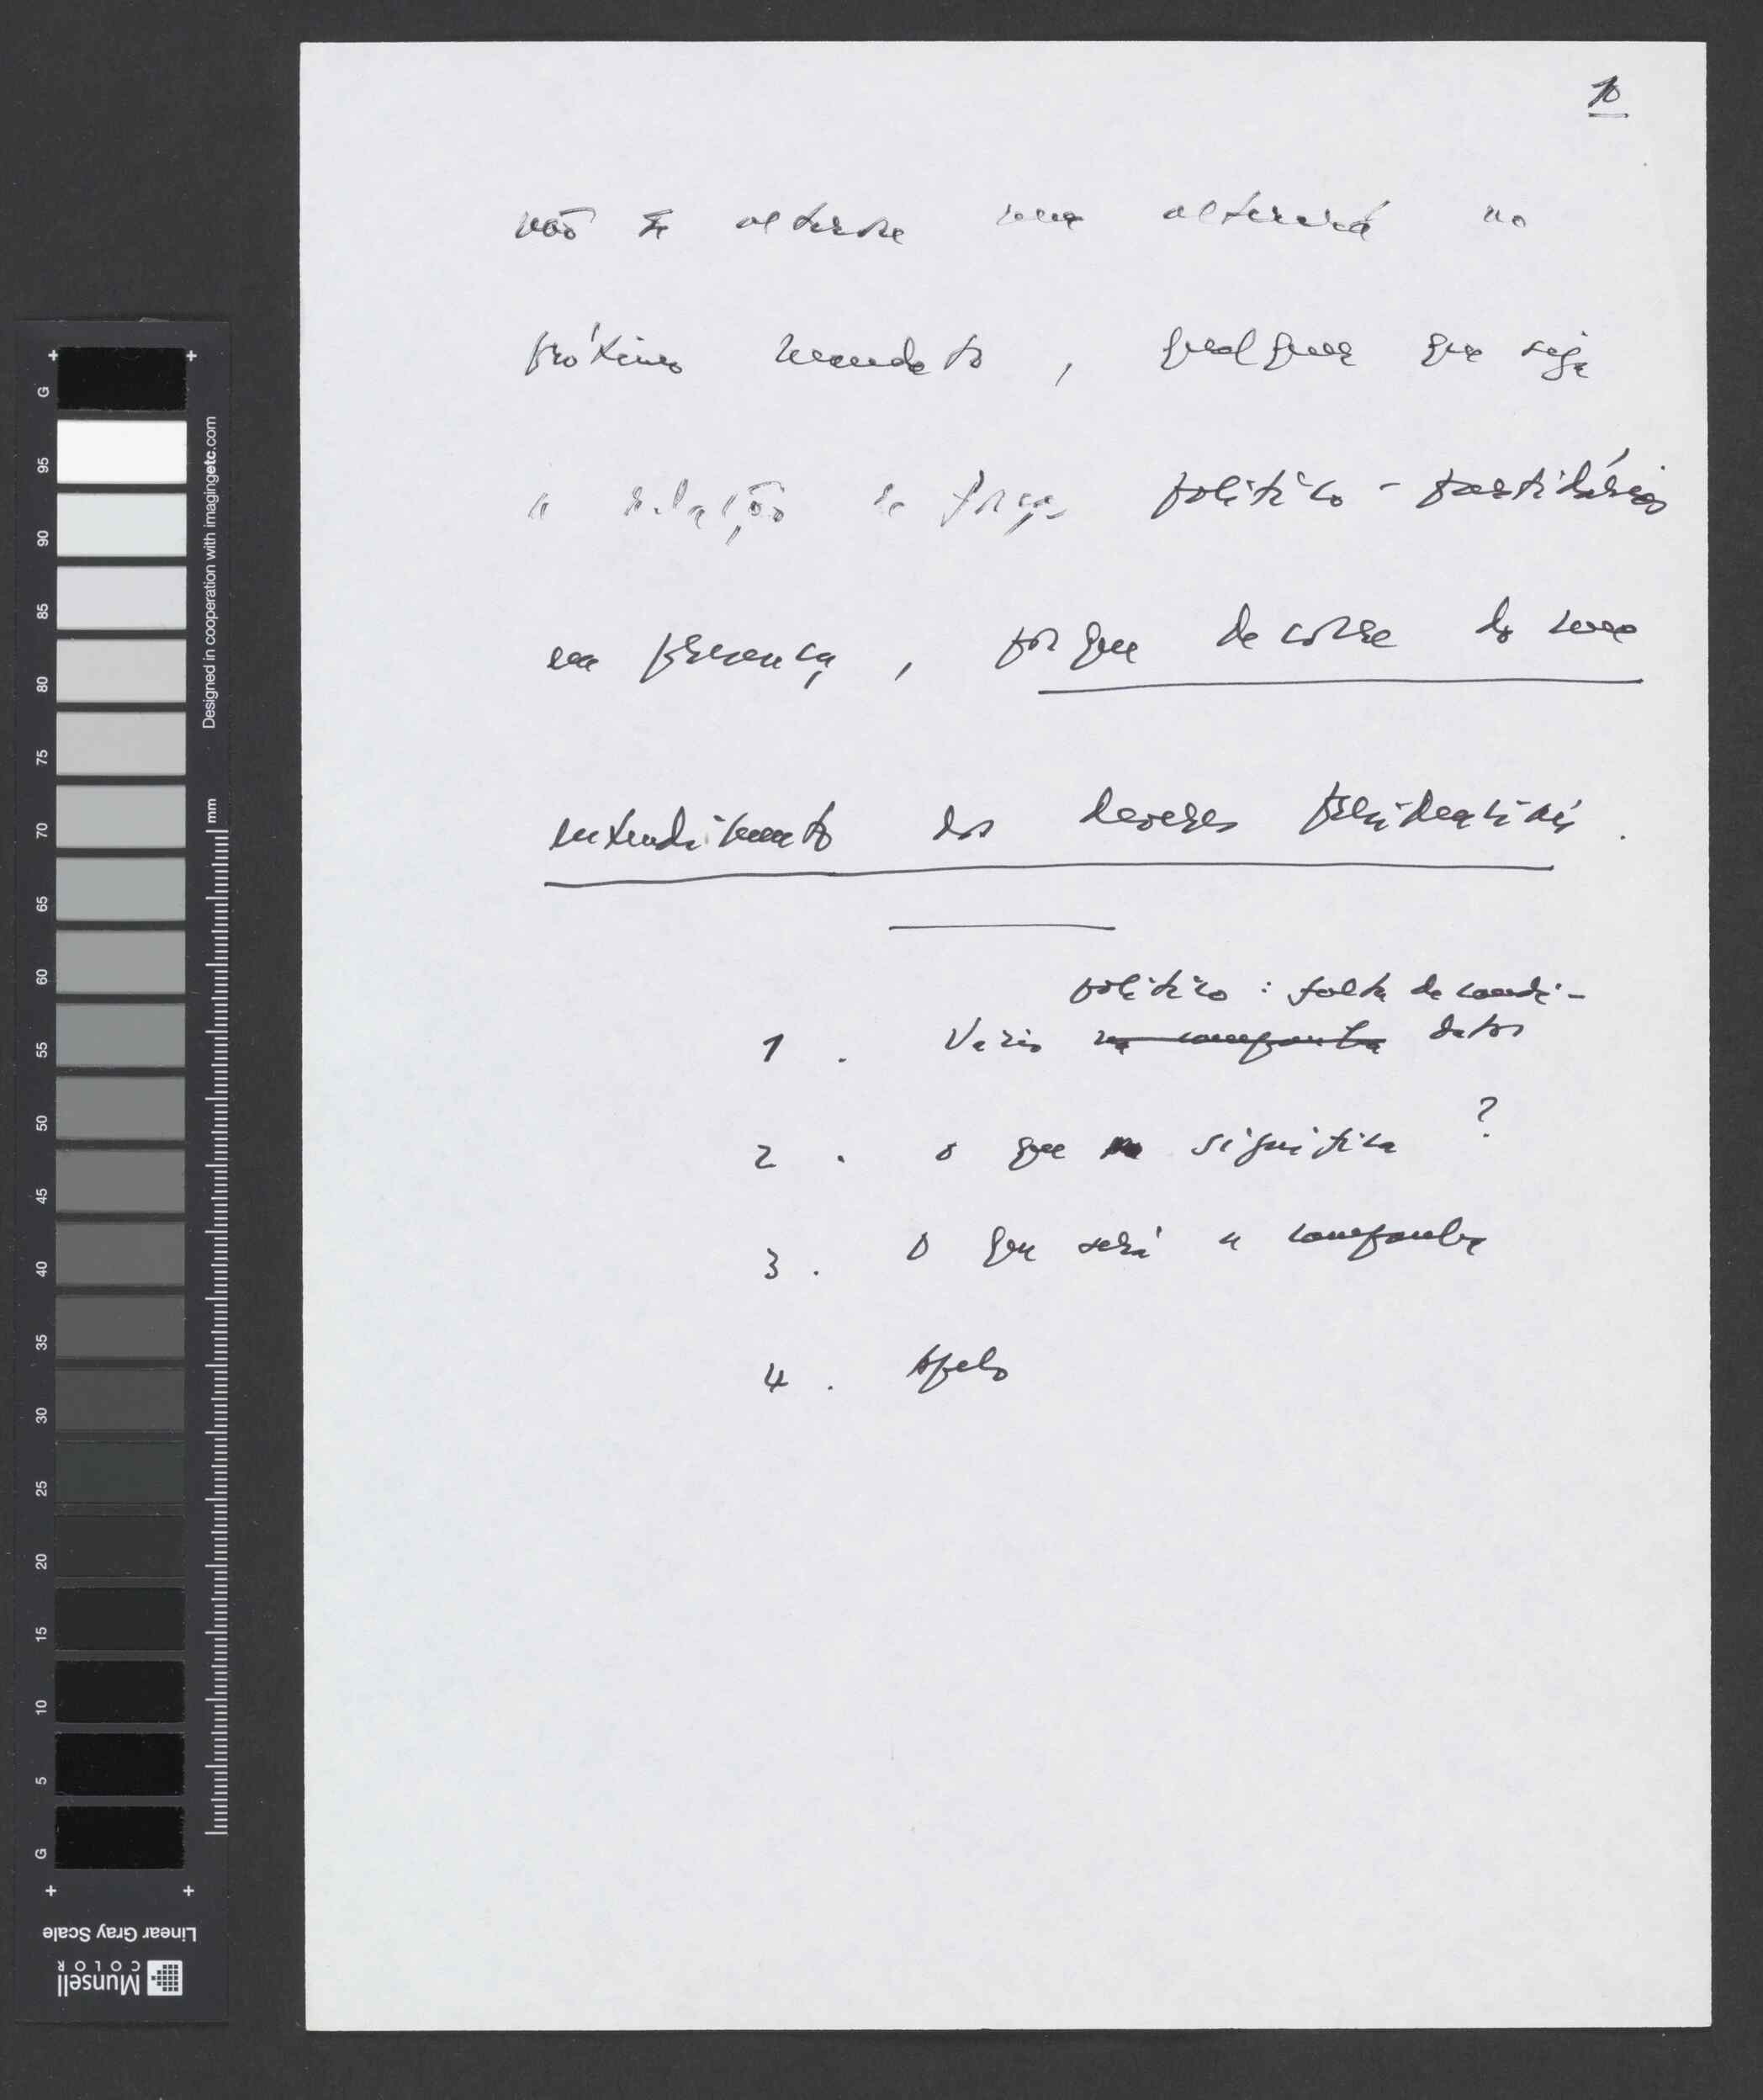 10
não se alterou nem alterará no
próximo mandato, qualquer que seja
a relação de forças político-partidárias
em presença, porque decorre do meu
entendimento dos deveres presidenciais.
político: falta de candi-
1. Vazio na campanha datos
2. o que significa?
3. O que será a campanha
4. Apelo
G
95
90
85
80
75
70
65
60
55
50
45
40
35
30
25
20
15
10
5
G
mm
Designed in cooperation with imagingetc.com
Linear Gray Scale
Munsell
COLOR